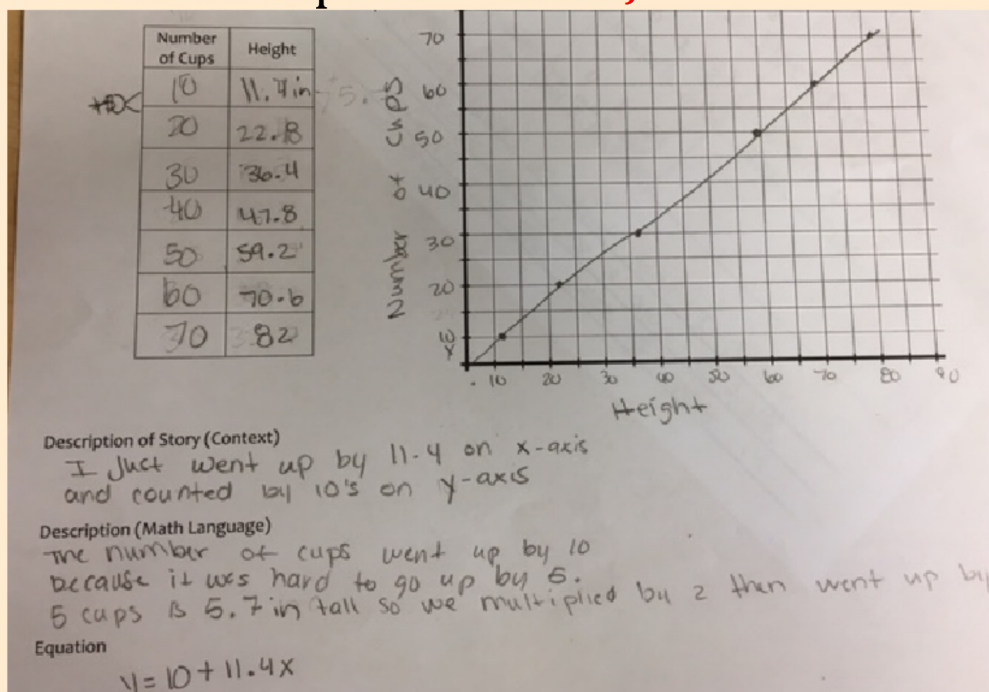 Number of Cups Height
10 11.4 in
20 22.8
30 36.4
40 47.8
50 59.2
60 70.6
70 82
Number of Cups
70
60
50
40
30
20
10
10 20 30 40 50 60 70 80 90
Height
Description of Story (Context)
I Just went up by 11.4 on x-axis
and counted by 10's on y-axis
Description (Math Language)
The number of cups went up by 10
because it was hard to go up by 5.
5 cups is 5.7 in tall so we multiplied by 2 then went up by
Equation
y = 10 + 11.4x